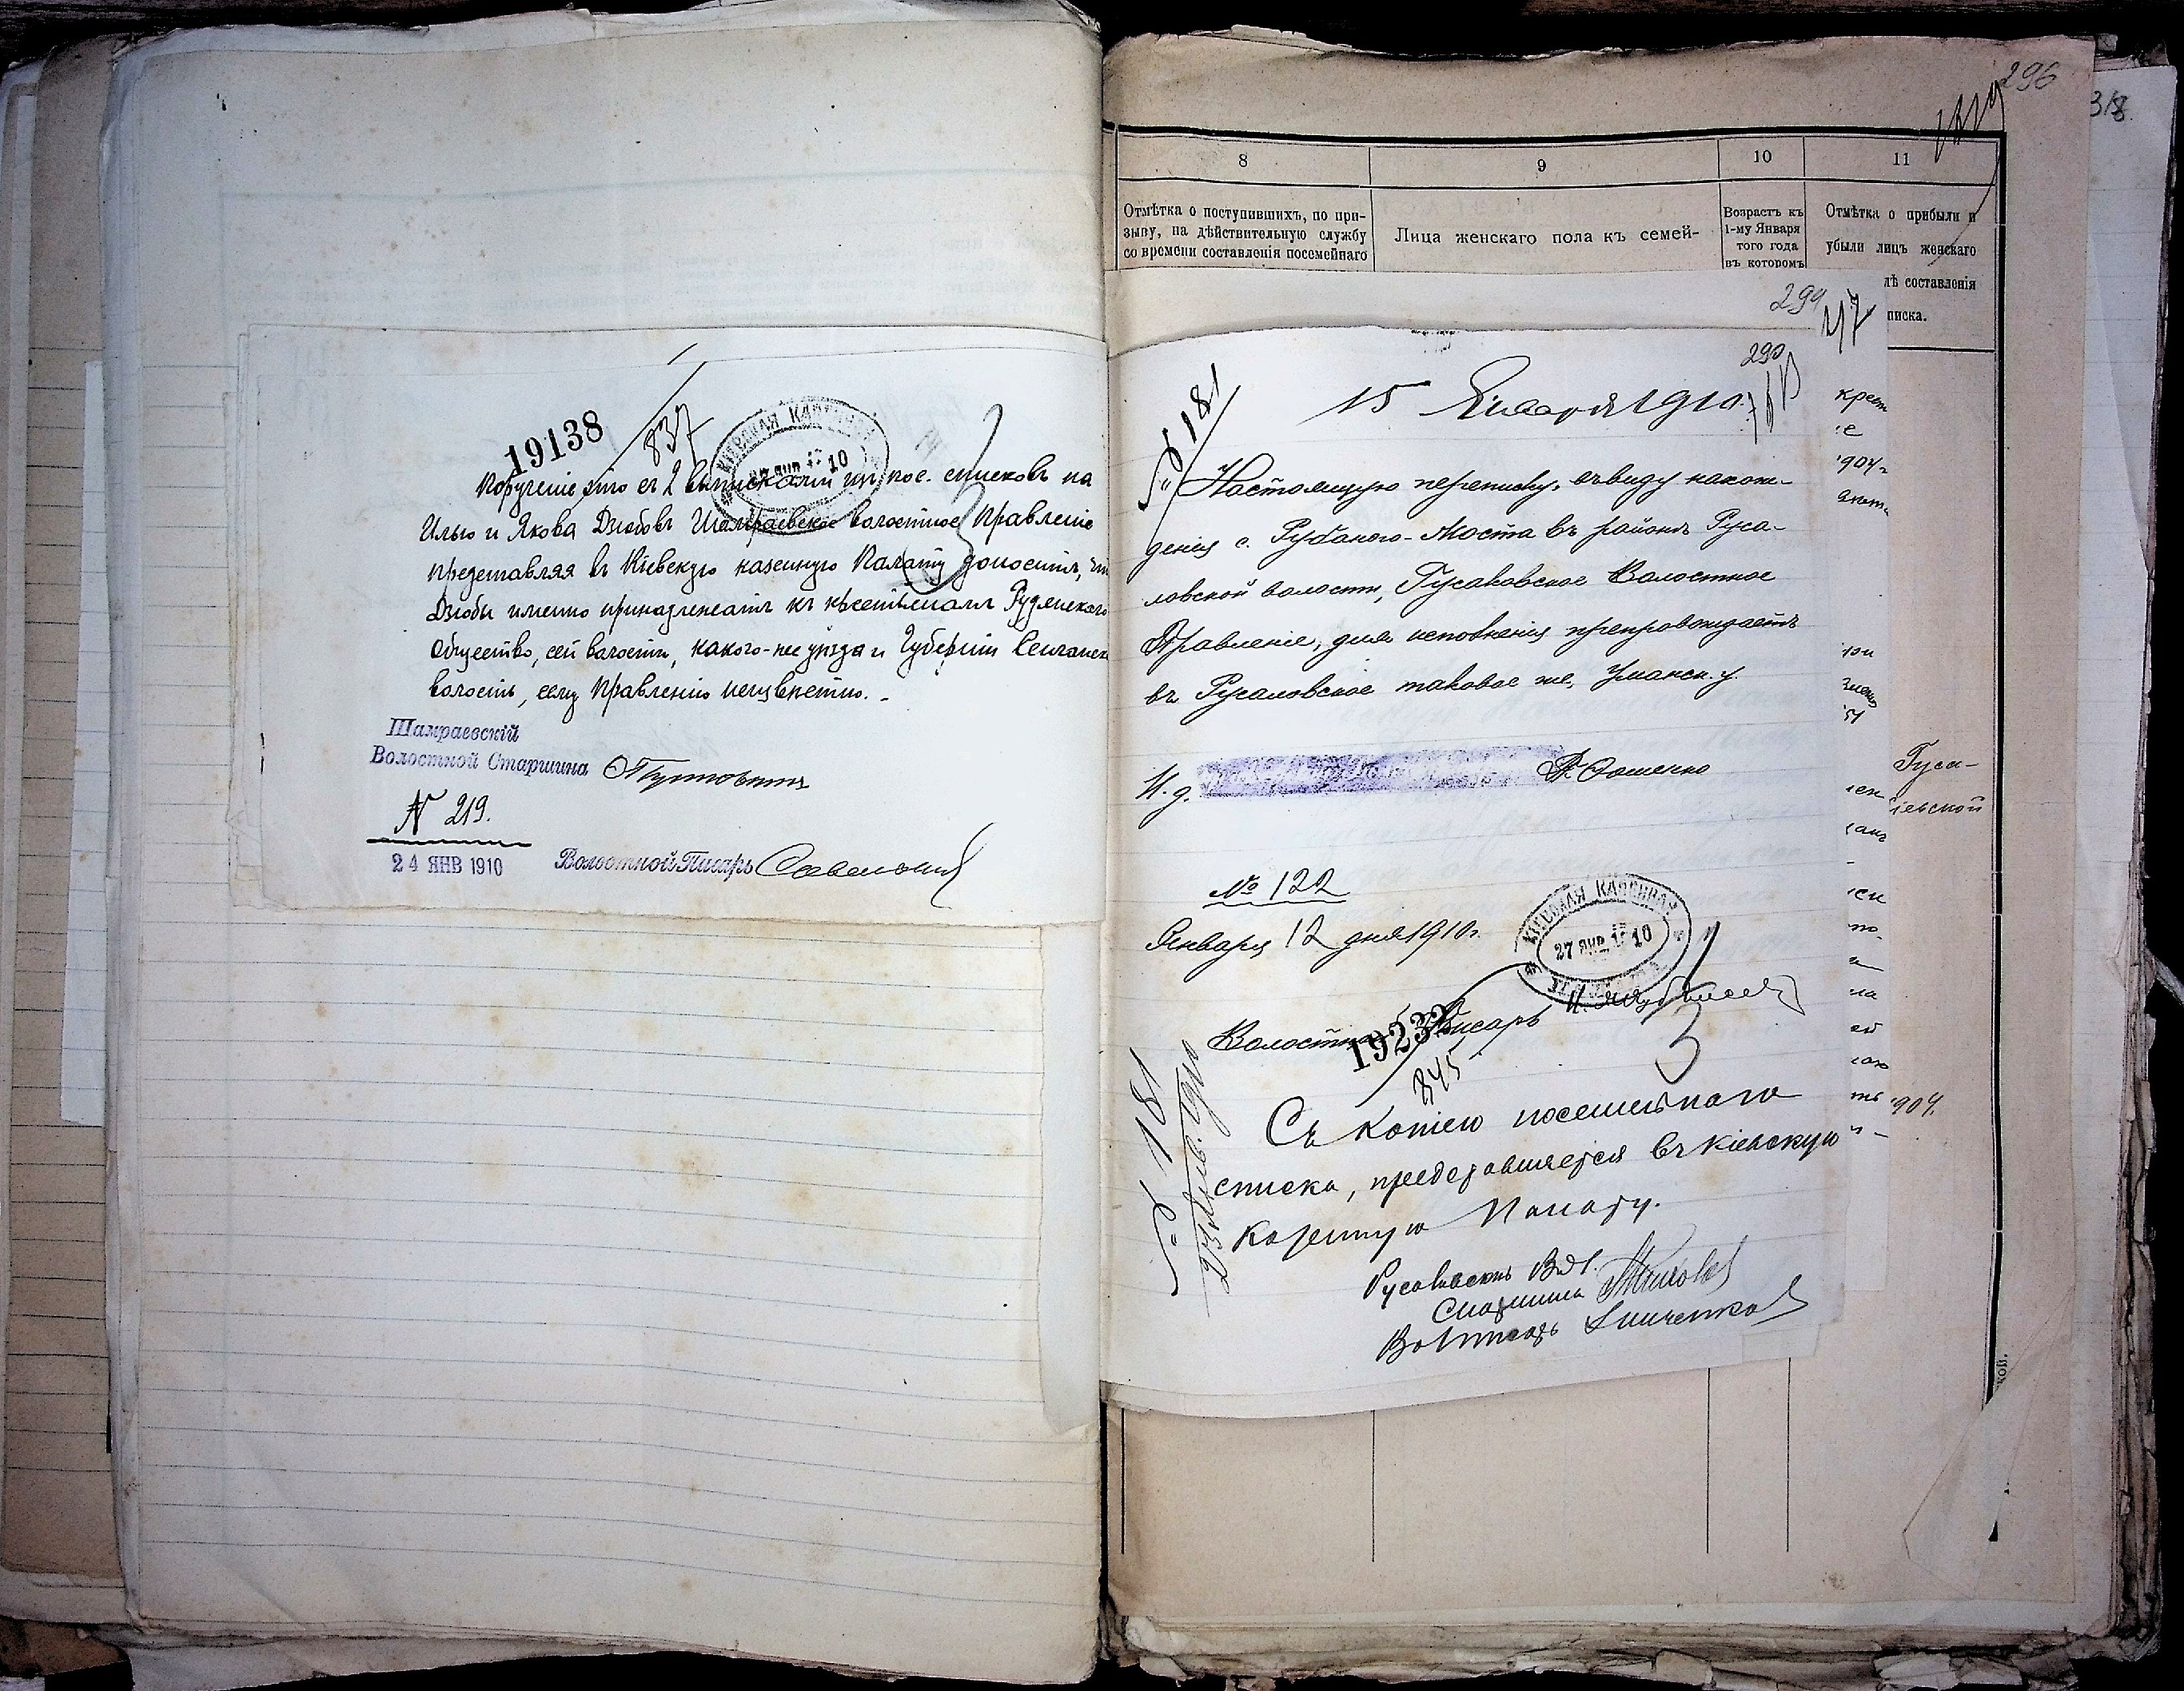 19138
837
КІЕВСКАЯ КАЗЕННАЯ
27 ЯНВ. 1910
Порученіе это съ 2 выписками изъ пос. списковъ на
Илью и Якова Дзюбовъ Шамраевское волостное Правленіе
представляя въ Кіевскую казенную Палату доноситъ, что
Дзюбы именно принадлежатъ къ крестьянамъ Рудянского
общество, сей волости, какого-же уѣзда и Губерніи
волость, сему Правленію неизвѣстно. -
Шамраевскій
Волостной Старшина
N 219.
24 ЯНВ 1910
Волостной Писарь
296
318.
8
9
10
11
Отмѣтка о поступившихъ, по при-
зыву, на дѣйствительную службу
со времени составленія посемейнаго
Лица женскаго пола къ семей-
Возрастъ къ
1-му Января
того года
въ которомъ
Отмѣтка о прибыли и
убыли лицъ женскаго
составленія
писка.
299
290
№ 181
15 Января 1910.
Настоящую переписку, въ виду нахож-
денія с. Рубаного-Моста въ районѣ Руса-
ловской волости, Гусаковское Волостное
Правленіе, для исполненія препровождаетъ
въ Русаловское таковое же, Уманск. у.
И. д.
№ 122
Января 12 дня 1910 г.
КІЕВСКАЯ КАЗЕННАЯ
27 ЯНВ. 1910
Волостной Писарь
19232
845
№ 181
23 Янв. 1910
Съ копіею посемейнаго
списка, представляется въ Кіевскую
Казенную Палату.
Русаловскій Вол.
Старшина
Вол писарь
Гуса-
904.